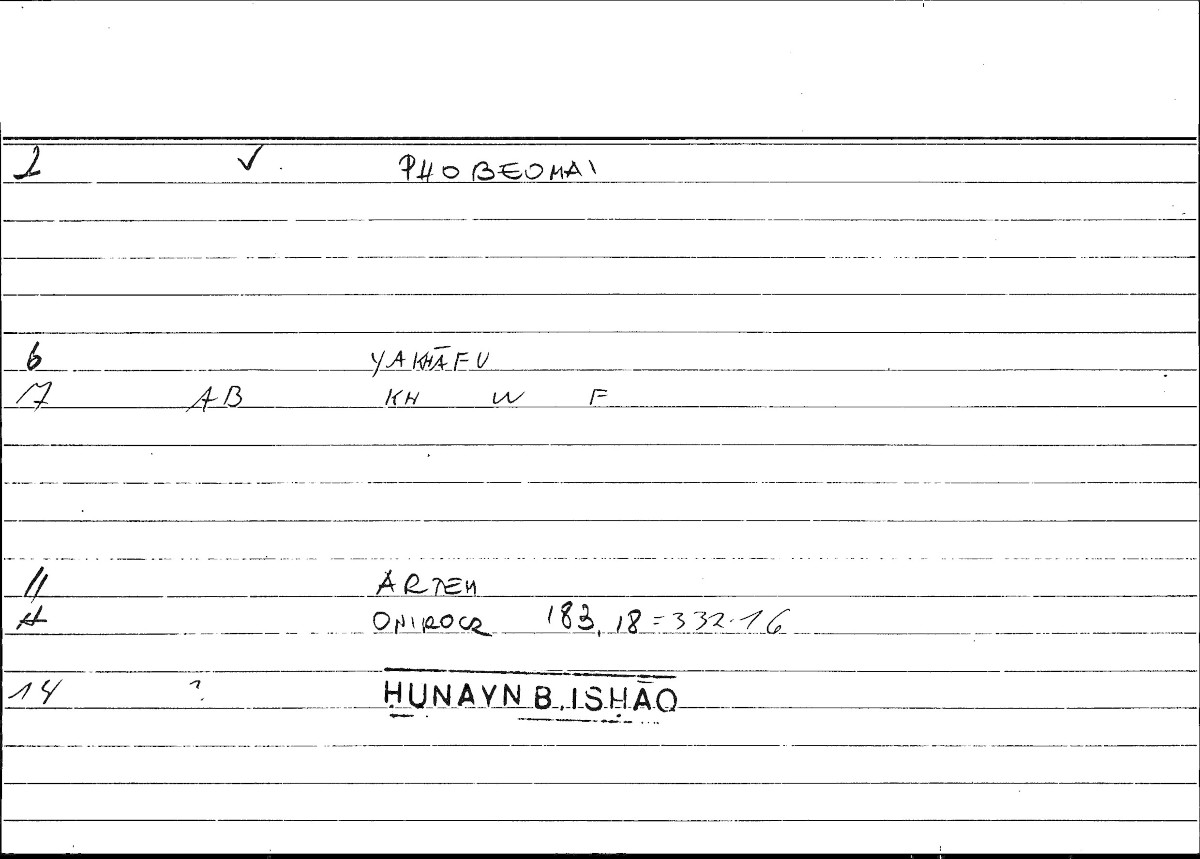 2 ✓ PHOBEOMAI
6 YAKHĀFU
7 AB KH W F
11 ARTEM
A ONIROCR 183,18=332.16
14 ? ḤUNAYN B. ISḤĀQ